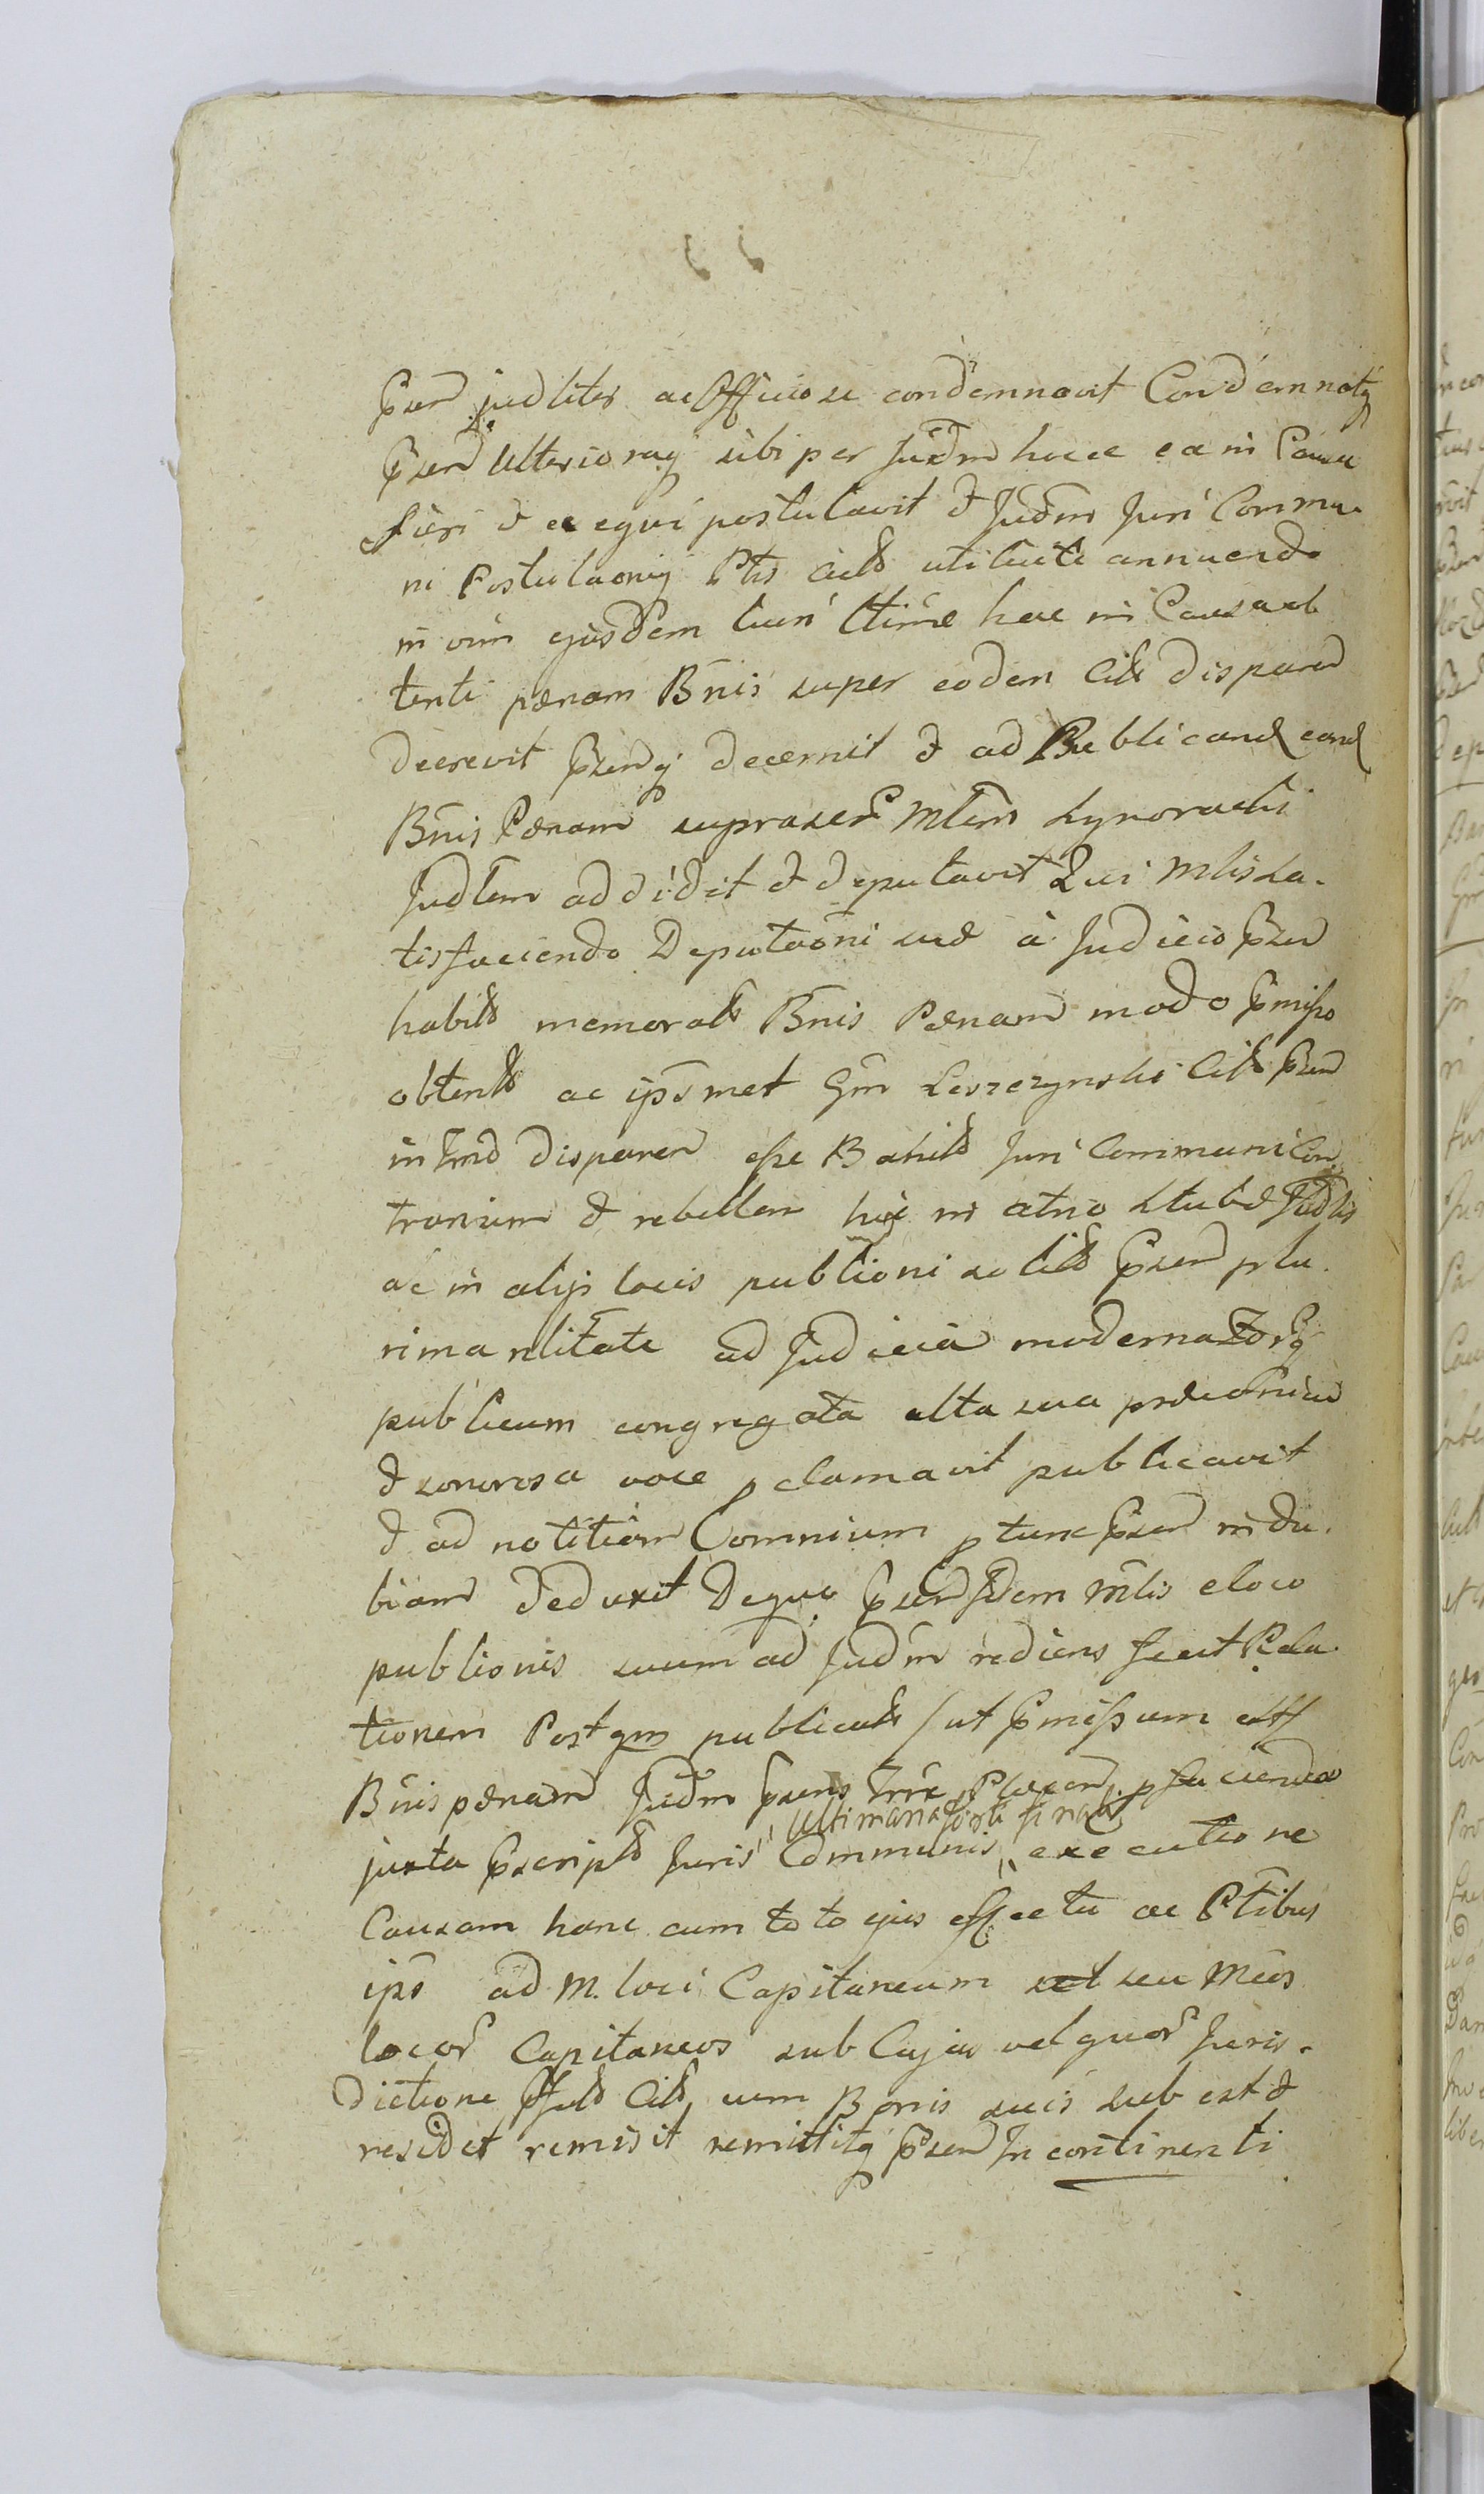 Pnsen judliter ac Officiose condemnavit Condemnatq
Pnsen Ulterioraq sibi per Judm hocce ea in Causa
fieri et exequi postulavit et Judm Juri Commu-
ni Postulaonq Ptis citt utilitati annuendo
in vim ejusdem lucri ltime hac in Causa ob
tenti pænam Bnis super eodem Citt disparen
decrevit Pnsenq decernit et ad Publicand eand
Bnis Pænam suprascr Mlem Synoradzki
Judlem addidit et deputavit Qui Mlis sa-
tisfaciendo Deputaoni suæ à Judicio Pnsen
habitt memoratt Bnis Pænam modo Pmisso
obtentt ac ipsmet Gm Leszczynski Citt Pnsen
in Tmo disparen esse Banitt Juri Communi Con
trarium et rebellem hic in atrio Stubæ Judlis
ac in alijs locis publioni solitt Pnsen plu-
rima nlitate ad Judicia moderna
publicum congregata alta sua præconica
et sonorosa voce pclamavit publicavit
et ad notitiam Comnium p tunc Pnsen indu-
biam deduxit Dequo Pnsen Idem Mlis eloco
publionis suum ad Judm rediens fecit Rela-
tionem Post qm publicatt /ut Pmissum est/
Bnis pænam Judm Pnsens Trre pfacienda
juxta Pscriptt Juris Communis Ultimaria fori finali executione
Causam hanc cum toto ejus effectu ac Ptibus
ips ad M. loci Capitaneum vel seu Mcos
locor Capitaneos sub Cujus vel quor Juris-
dictione Pfatt Citt cum Bonis suis subest et
residet remisit remittitq Pnsen In continenti